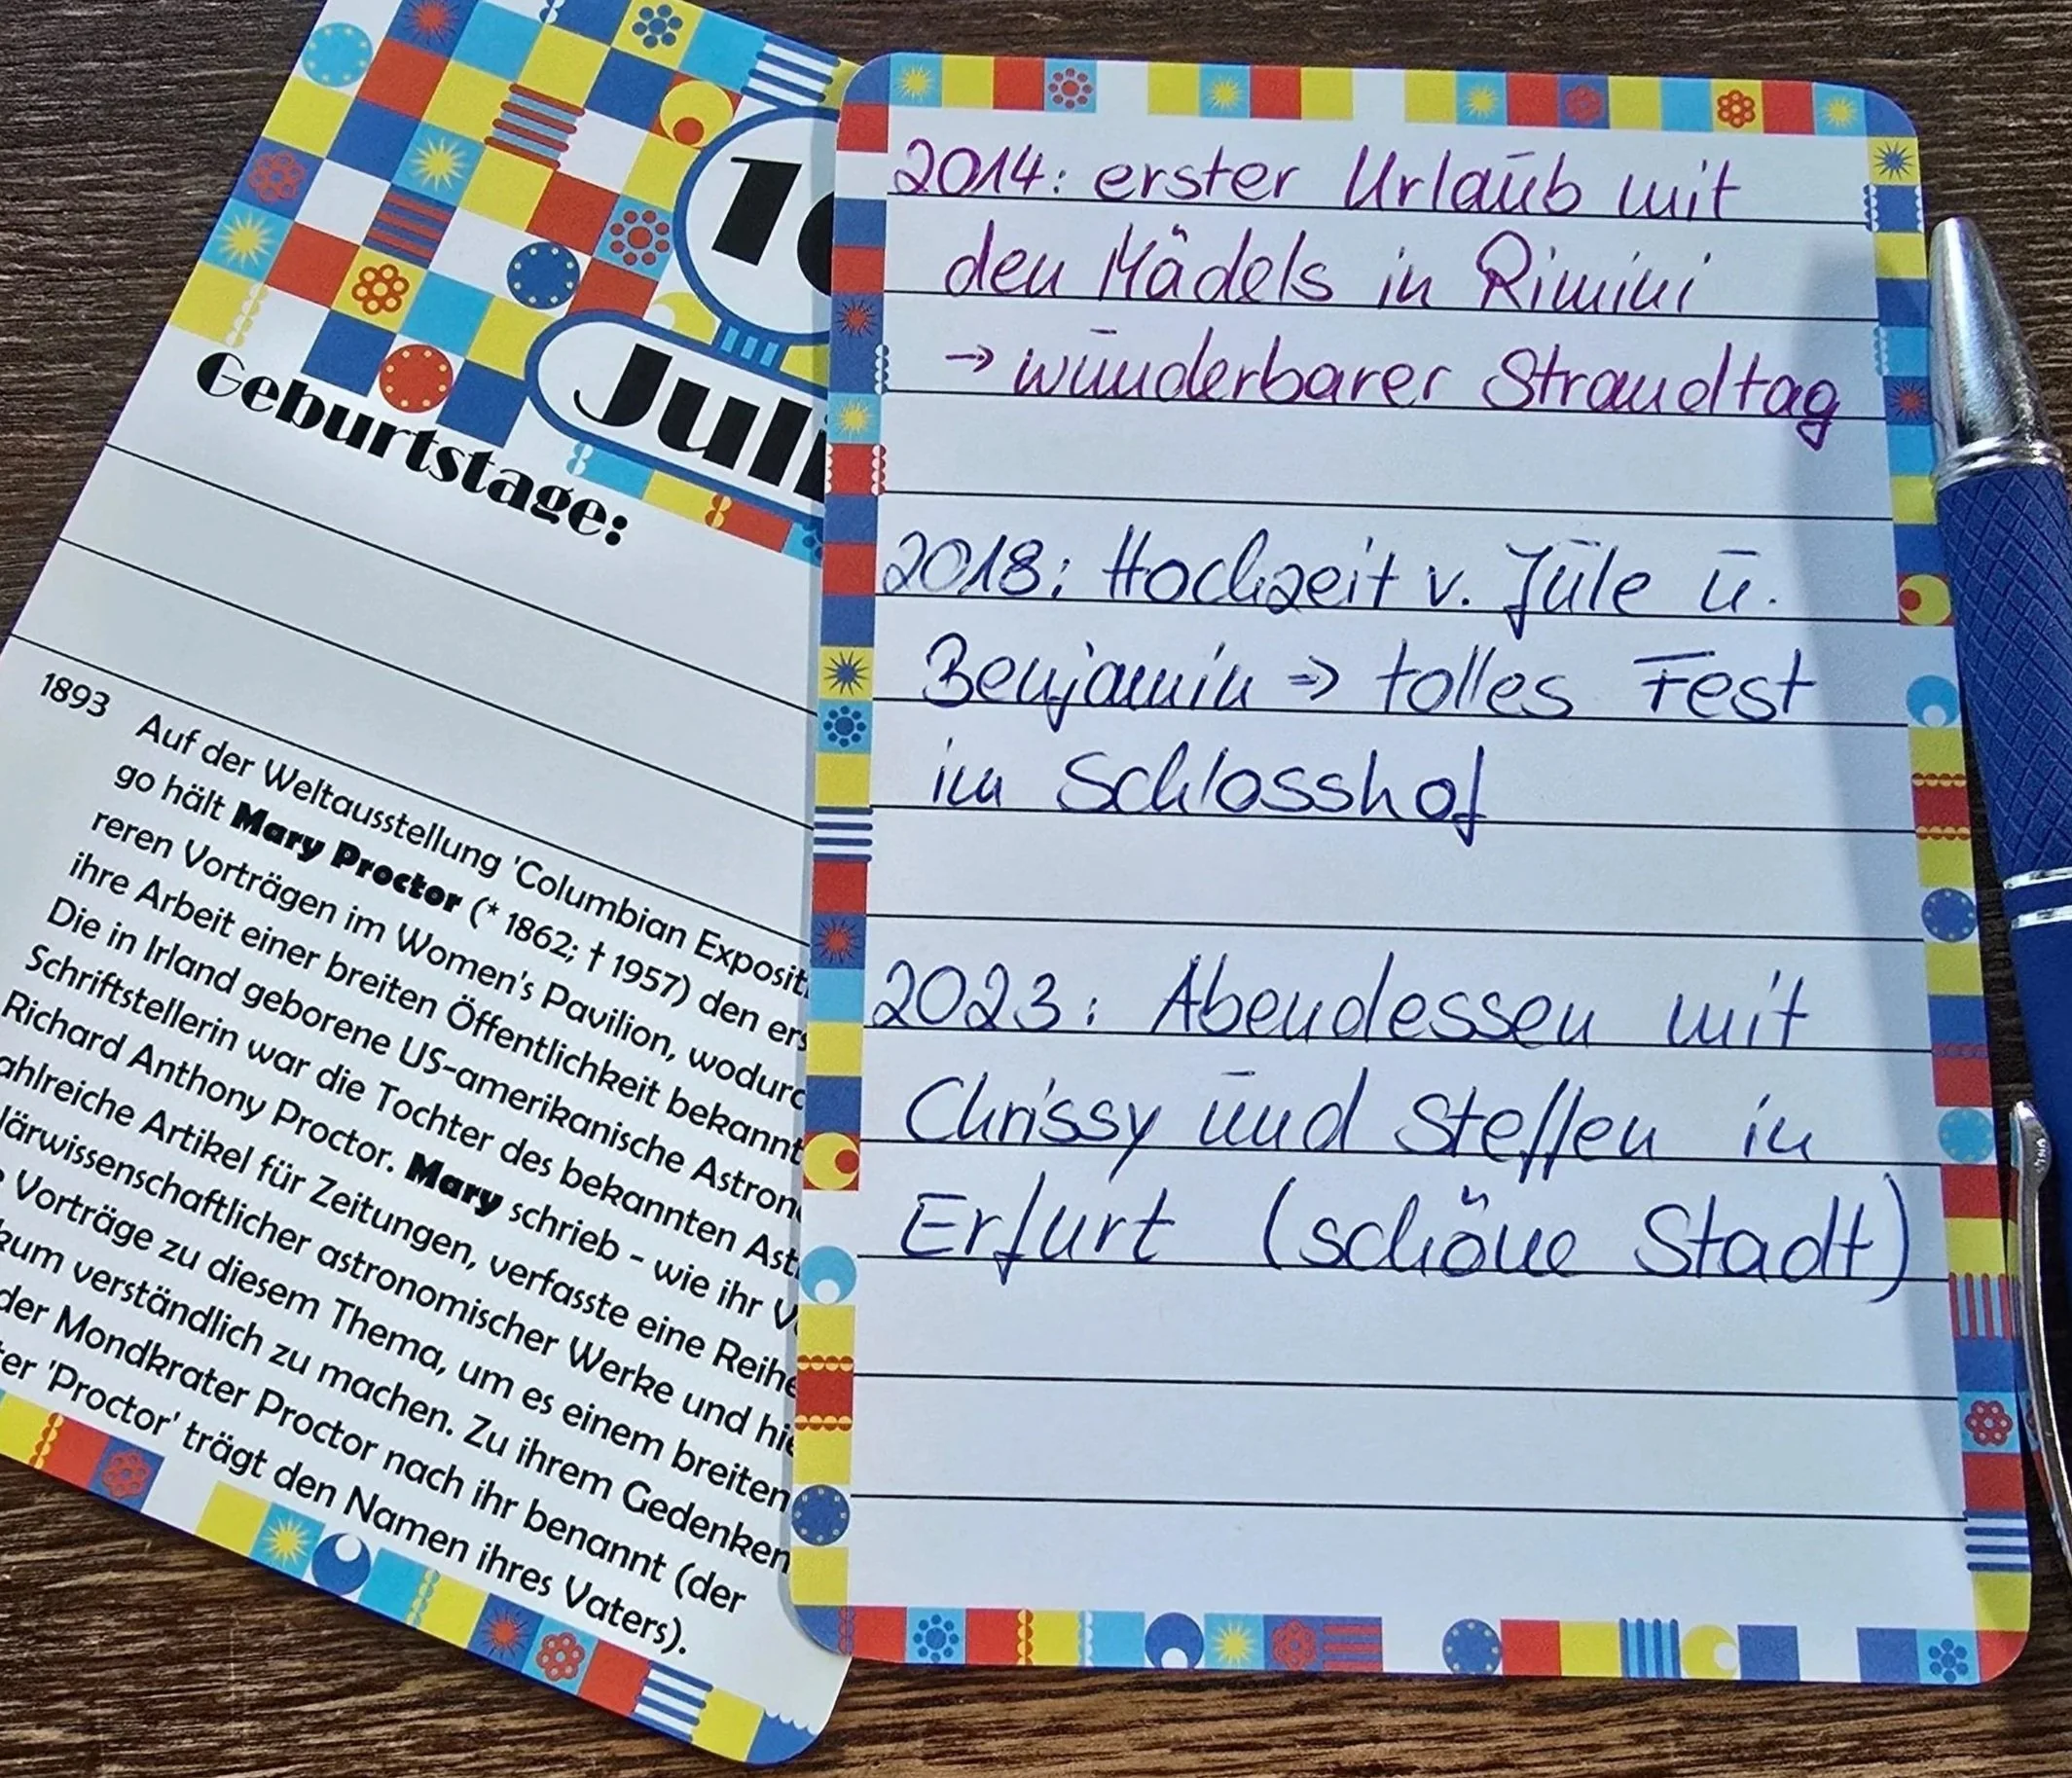 Juli
Geburtstage:
1893 Auf der Weltausstellung 'Columbian Expositi
go hält Mary Proctor (* 1862; † 1957) den ers
reren Vorträgen im Women's Pavilion, wodurc
ihre Arbeit einer breiten Öffentlichkeit bekannt
Die in Irland geborene US-amerikanische Astron
Schriftstellerin war die Tochter des bekannten Ast
Richard Anthony Proctor. Mary schrieb - wie ihr V
ahlreiche Artikel für Zeitungen, verfasste eine Reihe
lärwissenschaftlicher astronomischer Werke und hie
Vorträge zu diesem Thema, um es einem breiten
kum verständlich zu machen. Zu ihrem Gedenken
der Mondkrater Proctor nach ihr benannt (der
ter 'Proctor' trägt den Namen ihres Vaters).
2014: erster Urlaub mit
den Mädels in Rimini
→ wunderbarer Strandtag
2018: Hochzeit v. Jule u.
Benjamin → tolles Fest
im Schlosshof
2023: Abendessen mit
Chrissy und Steffen in
Erfurt (schöne Stadt)